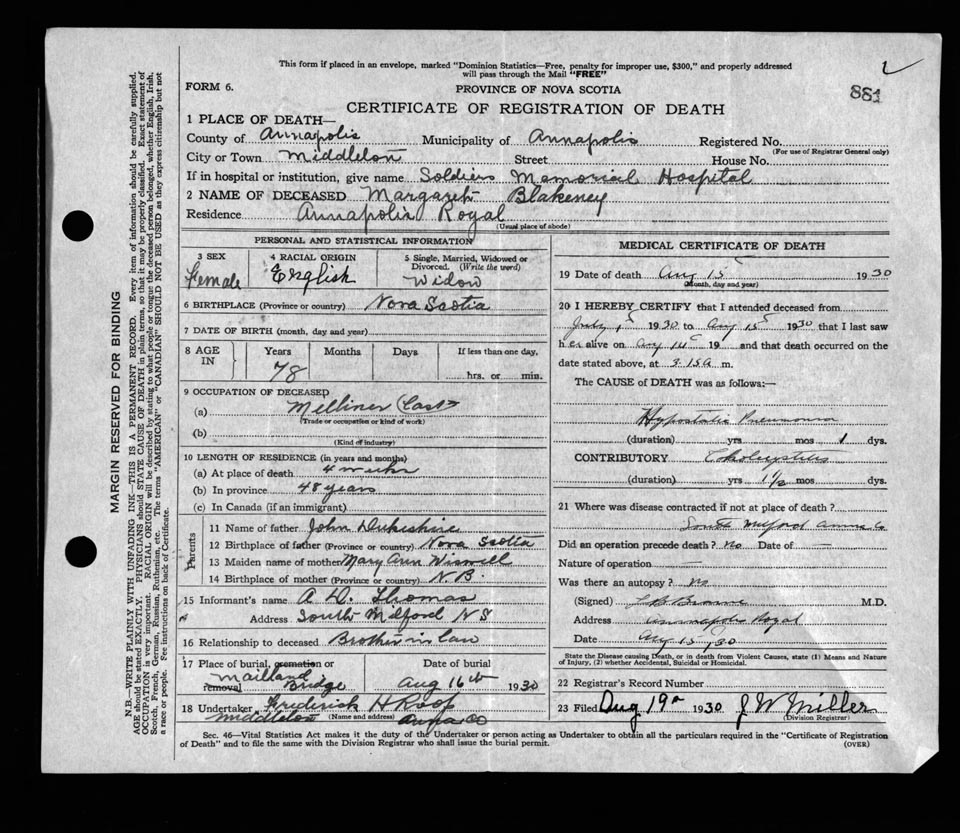 This form if placed in an envelope, marked "Dominion Statistics—Free, penalty for improper use, $300," and properly addressed
will pass through the Mail "FREE"
FORM 6.
PROVINCE OF NOVA SCOTIA
881
CERTIFICATE OF REGISTRATION OF DEATH
1 PLACE OF DEATH—
County of Annapolis Municipality of Annapolis Registered No.
(For use of Registrar General only)
City or Town Middleton Street House No.
If in hospital or institution, give name Soldiers Memorial Hospital
2 NAME OF DECEASED Margaret Blakeney
Residence Annapolis Royal
(Usual place of abode)
PERSONAL AND STATISTICAL INFORMATION
3 SEX
Female
4 RACIAL ORIGIN
English
5 Single, Married, Widowed or
Divorced. (Write the word)
Widow
6 BIRTHPLACE (Province or country) Nova Scotia
7 DATE OF BIRTH (month, day and year)
8 AGE IN
Years Months Days If less than one day,
78 hrs. or min.
9 OCCUPATION OF DECEASED
(a) Milliner
(Trade or occupation or kind of work)
(b)
(Kind of industry)
10 LENGTH OF RESIDENCE (in years and months)
(a) At place of death 4 weeks
(b) In province 48 years
(c) In Canada (if an immigrant)
Parents
11 Name of father John Dukeshire
12 Birthplace of father (Province or country) Nova Scotia
13 Maiden name of mother Mary Ann Wiswell
14 Birthplace of mother (Province or country) N B.
15 Informant's name A D. Thomas
Address South Milford N S
16 Relationship to deceased Brother in law
17 Place of burial, cremation or
removal Maitland Bridge
Date of burial
Aug 16th 1930
18 Undertaker Frederick H Roop
Middleton (Name and address) Anna Co
MEDICAL CERTIFICATE OF DEATH
19 Date of death Aug 15 1930
(Month, day and year)
20 I HEREBY CERTIFY that I attended deceased from
July 1930 to Aug 15 1930 that I last saw
her alive on Aug 14 19 and that death occurred on the
date stated above, at 3.15 a m.
The CAUSE of DEATH was as follows:—
Hypostatic Pneumonia
(duration) yrs mos 1 dys.
CONTRIBUTORY Cholecystitis
(duration) yrs 1½ mos dys.
21 Where was disease contracted if not at place of death?
South Milford Anna Co
Did an operation precede death? No Date of —
Nature of operation —
Was there an autopsy? No
(Signed) M.D.
Address Annapolis Royal
Date Aug 15, 30
State the Disease causing Death, or in death from Violent Causes, state (1) Means and Nature
of Injury, (2) whether Accidental, Suicidal or Homicidal.
22 Registrar's Record Number
23 Filed Aug 19 1930 J W Miller
(Division Registrar)
Sec. 46—Vital Statistics Act makes it the duty of the Undertaker or person acting as Undertaker to obtain all the particulars required in the "Certificate of Registration
of Death" and to file the same with the Division Registrar who shall issue the burial permit.
(OVER)
MARGIN RESERVED FOR BINDING
N.B.—WRITE PLAINLY WITH UNFADING INK—THIS IS A PERMANENT RECORD. Every item of information should be carefully supplied.
AGE should be stated EXACTLY. PHYSICIANS should STATE CAUSE OF DEATH in plain terms, so that it may be properly classified. Exact statement of
OCCUPATION is very important. RACIAL ORIGIN will be described by stating to what people or tongue the deceased person belonged, whether English, Irish,
Scotch, French, German, Russian, Ruthenian, etc. The terms "AMERICAN" or "CANADIAN" SHOULD NOT BE USED as they express citizenship but not
a race or people. See instructions on back of Certificate.